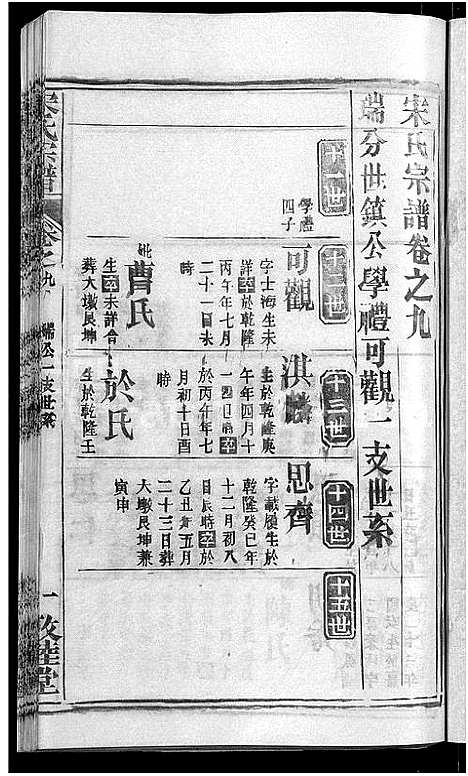 宋氏宗譜卷之九
端分世鎮公學禮可觀一支世系
十一世
十二世
十三世
十四世
十五世
學禮
四子
可觀
字士海生未
詳卒於乾隆
丙午年七月
二十一日未
時
妣曹氏
生卒未詳合
葬大墩艮坤
淇麟
生於乾隆庚
午年四月十
一四日時卒
於丙午年七
月初十日酉
時
於氏
生於乾隆壬
思齊
字載履生於
乾隆癸巳年
十二月初八
日辰時卒於
乙丑年五月
二十三日葬
大墩艮坤兼
寅申
宋氏宗譜
卷之九
端公一支世系
一
敦睦堂